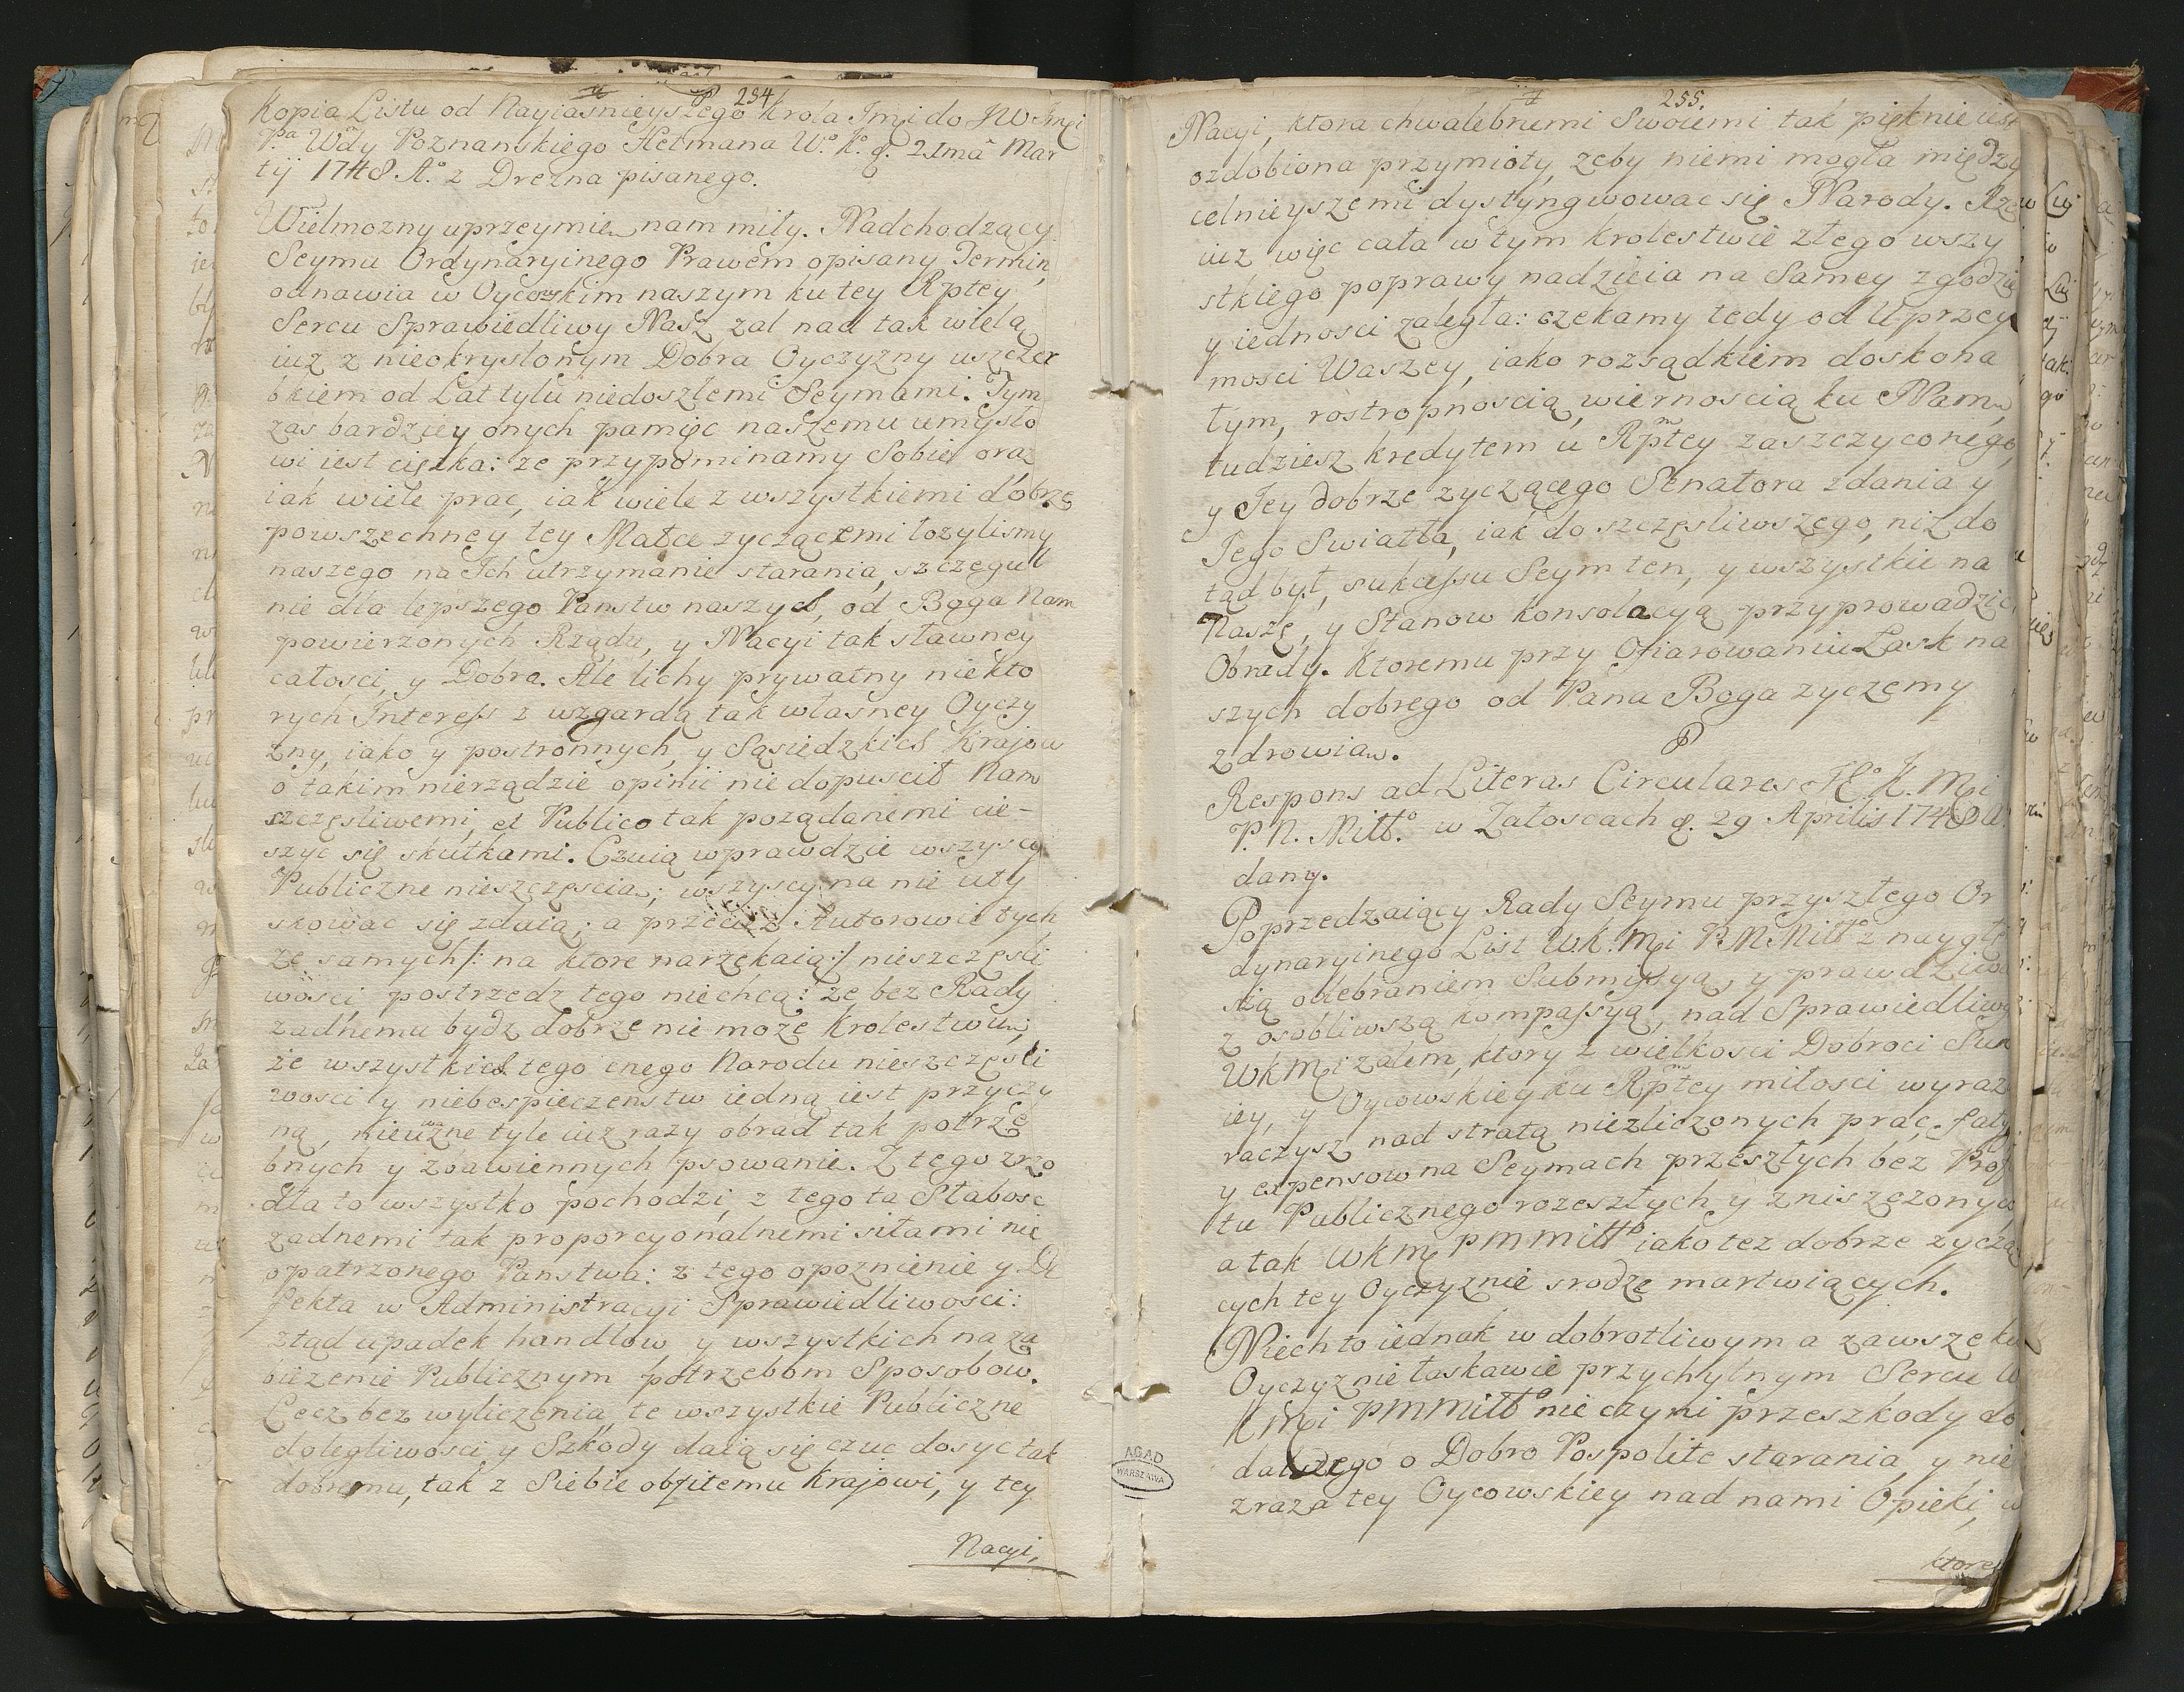 254
Kopia Listu od Nayiasnieyszego Krola Jmci do JW Jmci
Pa. Wdy Poznanskiego Hetmana W. K. d. 21ma Mar
tij 1748 Ao. z Drezna pisanego.
Wielmozny uprzeymie nam miły. Nadchodzący
Seymu Ordynaryinego Prawem opisany Termin,
odnawia w Oycowskim naszym ku tey Rptey
Sercu Sprawiedliwy Nasz zal nad tak wielą
iuz z nieokryslonym Dobra Oyczyzny uszczer
bkiem od Lat tylu niedoszłemi Seymami. Tym
zas bardziey onych pamięc naszemu umysło
wi iest cięzka: ze przypominamy Sobie oraz
iak wiele prac, iak wiele z wszystkiemi dobrze
powszechney tey Matce zyczącemi łozylismy
naszego na Ich utrzymanie starania, szczegul
nie dla lepszego Panstw naszych, od Boga Nam
powierzonych Rządu, y Nacyi tak sławney
całosci, y Dobra. Ale lichy prywatny niekto
rych Interess z wzgardą tak własney Oyczy
zny, iako y postronnych, y Sąsiedzkich Krajow
o takim nierządzie opinii nie dopuscił Nam
szczęsliwemi, et Publico tak poządanemi cie-
szyc się skutkami. Czuią wprawdzie wszyscy
Publiczne nieszczęscia; wszyscy na nie uty
skowac się zdaią; a przeciez Autorowie tych
ze samych /: na ktore narzekaią :/ nieszczęsli
wosci, postrzedz tego niechcą: ze bez Rady
zadnemu bydz dobrze nie moze Krolestwu;
że wszystkich tego cnego Narodu nieszczęsli
wosci y niebespieczenstw iedną iest przyczy
ną, nieuwazne tyle iuz razy obrad tak potrze
bnych y zbawiennych psowanie. Z tego zrzo
dła to wszystko pochodzi, z tego ta Słabosc
zadnemi tak proporcyonalnemi siłami nie
opatrzonego Panstwa: z tego opoznienie y De
fekta w Administracyi Sprawiedliwosci:
ztąd upadek handlow y wszystkich na za
biezenie Publicznym potrzebom Sposobow.
Lecz bez wyliczenia, te wszystkie Publiczne
dolegliwosci y Szkody daią się czuc dosyc tak
dobremu, tak z Siebie obfitemu Krajowi, y tey
Nacyi,
255.
Nacyi, ktora chwalebnemi Swoiemi tak pięknie iest
ozdobiona przymioty, zeby niemi mogła między
celnieyszemi dystyngwowac się Narody. Rze
iuz więc cała w tym Krolestwie złego wszy
stkiego poprawy nadzieia na Samey zgodzie
y iednosci zaległa: czekamy tedy od Uprzey
mosci Waszey, iako rozsądkiem doskona
łym, rostropnoscią, wiernoscią ku Nam,
tudziesz kredytem u Rptey zaszczyconego,
y Jey dobrze zyczącego Senatora zdania y
Jego Swiatła, iak do szczęsliwszego, niz do
tąd był, sukcessu Seym ten, y wszystkie na
Naszę, y Stanow konsolacyą przyprowadzic
Obrady. Ktoremu przy Ofiarowaniu Łask na
szych dobrego od Pana Boga zyczemy
zdrowia.
Respons ad Literas Circulares JKo. K. Mci
P. N. Miło. w Załoscach d. 29 Aprilis 1748 A.
dany.
Poprzedzaiący Rady Seymu przyszłego Or
dynaryinego List W.K. Mci PMMiłło z naygłę
szą odebraniem Submissyą, y prawdziwą
z osobliwszą kompassyą, nad Sprawiedliwym
WKMci zalem, ktory z wielkosci Dobroci Swo
iey, y Oycowskiey ku Rptey miłosci wyraz
raczysz nad stratą niezliczonych prac, fatyg
y expensow na Seymach przeszłych bez Prof
tu Publicznego rozeszłych y zniszczonych
a tak WKM PMMiłło iako tez dobrze zyczą
cych tey Oyczyznie srodze martwiących.
Niech to iednak w dobrotliwym a zawsze ku
Oyczyznie łaskawie przychylnym Sercu W
K Mci PMMiłło nie czyni przeszkody do
dalszego o Dobro Pospolite starania, y nie
zraza tey Oycowskiey nad nami Opieki, w
ktorey
AGAD
WARSZAWA